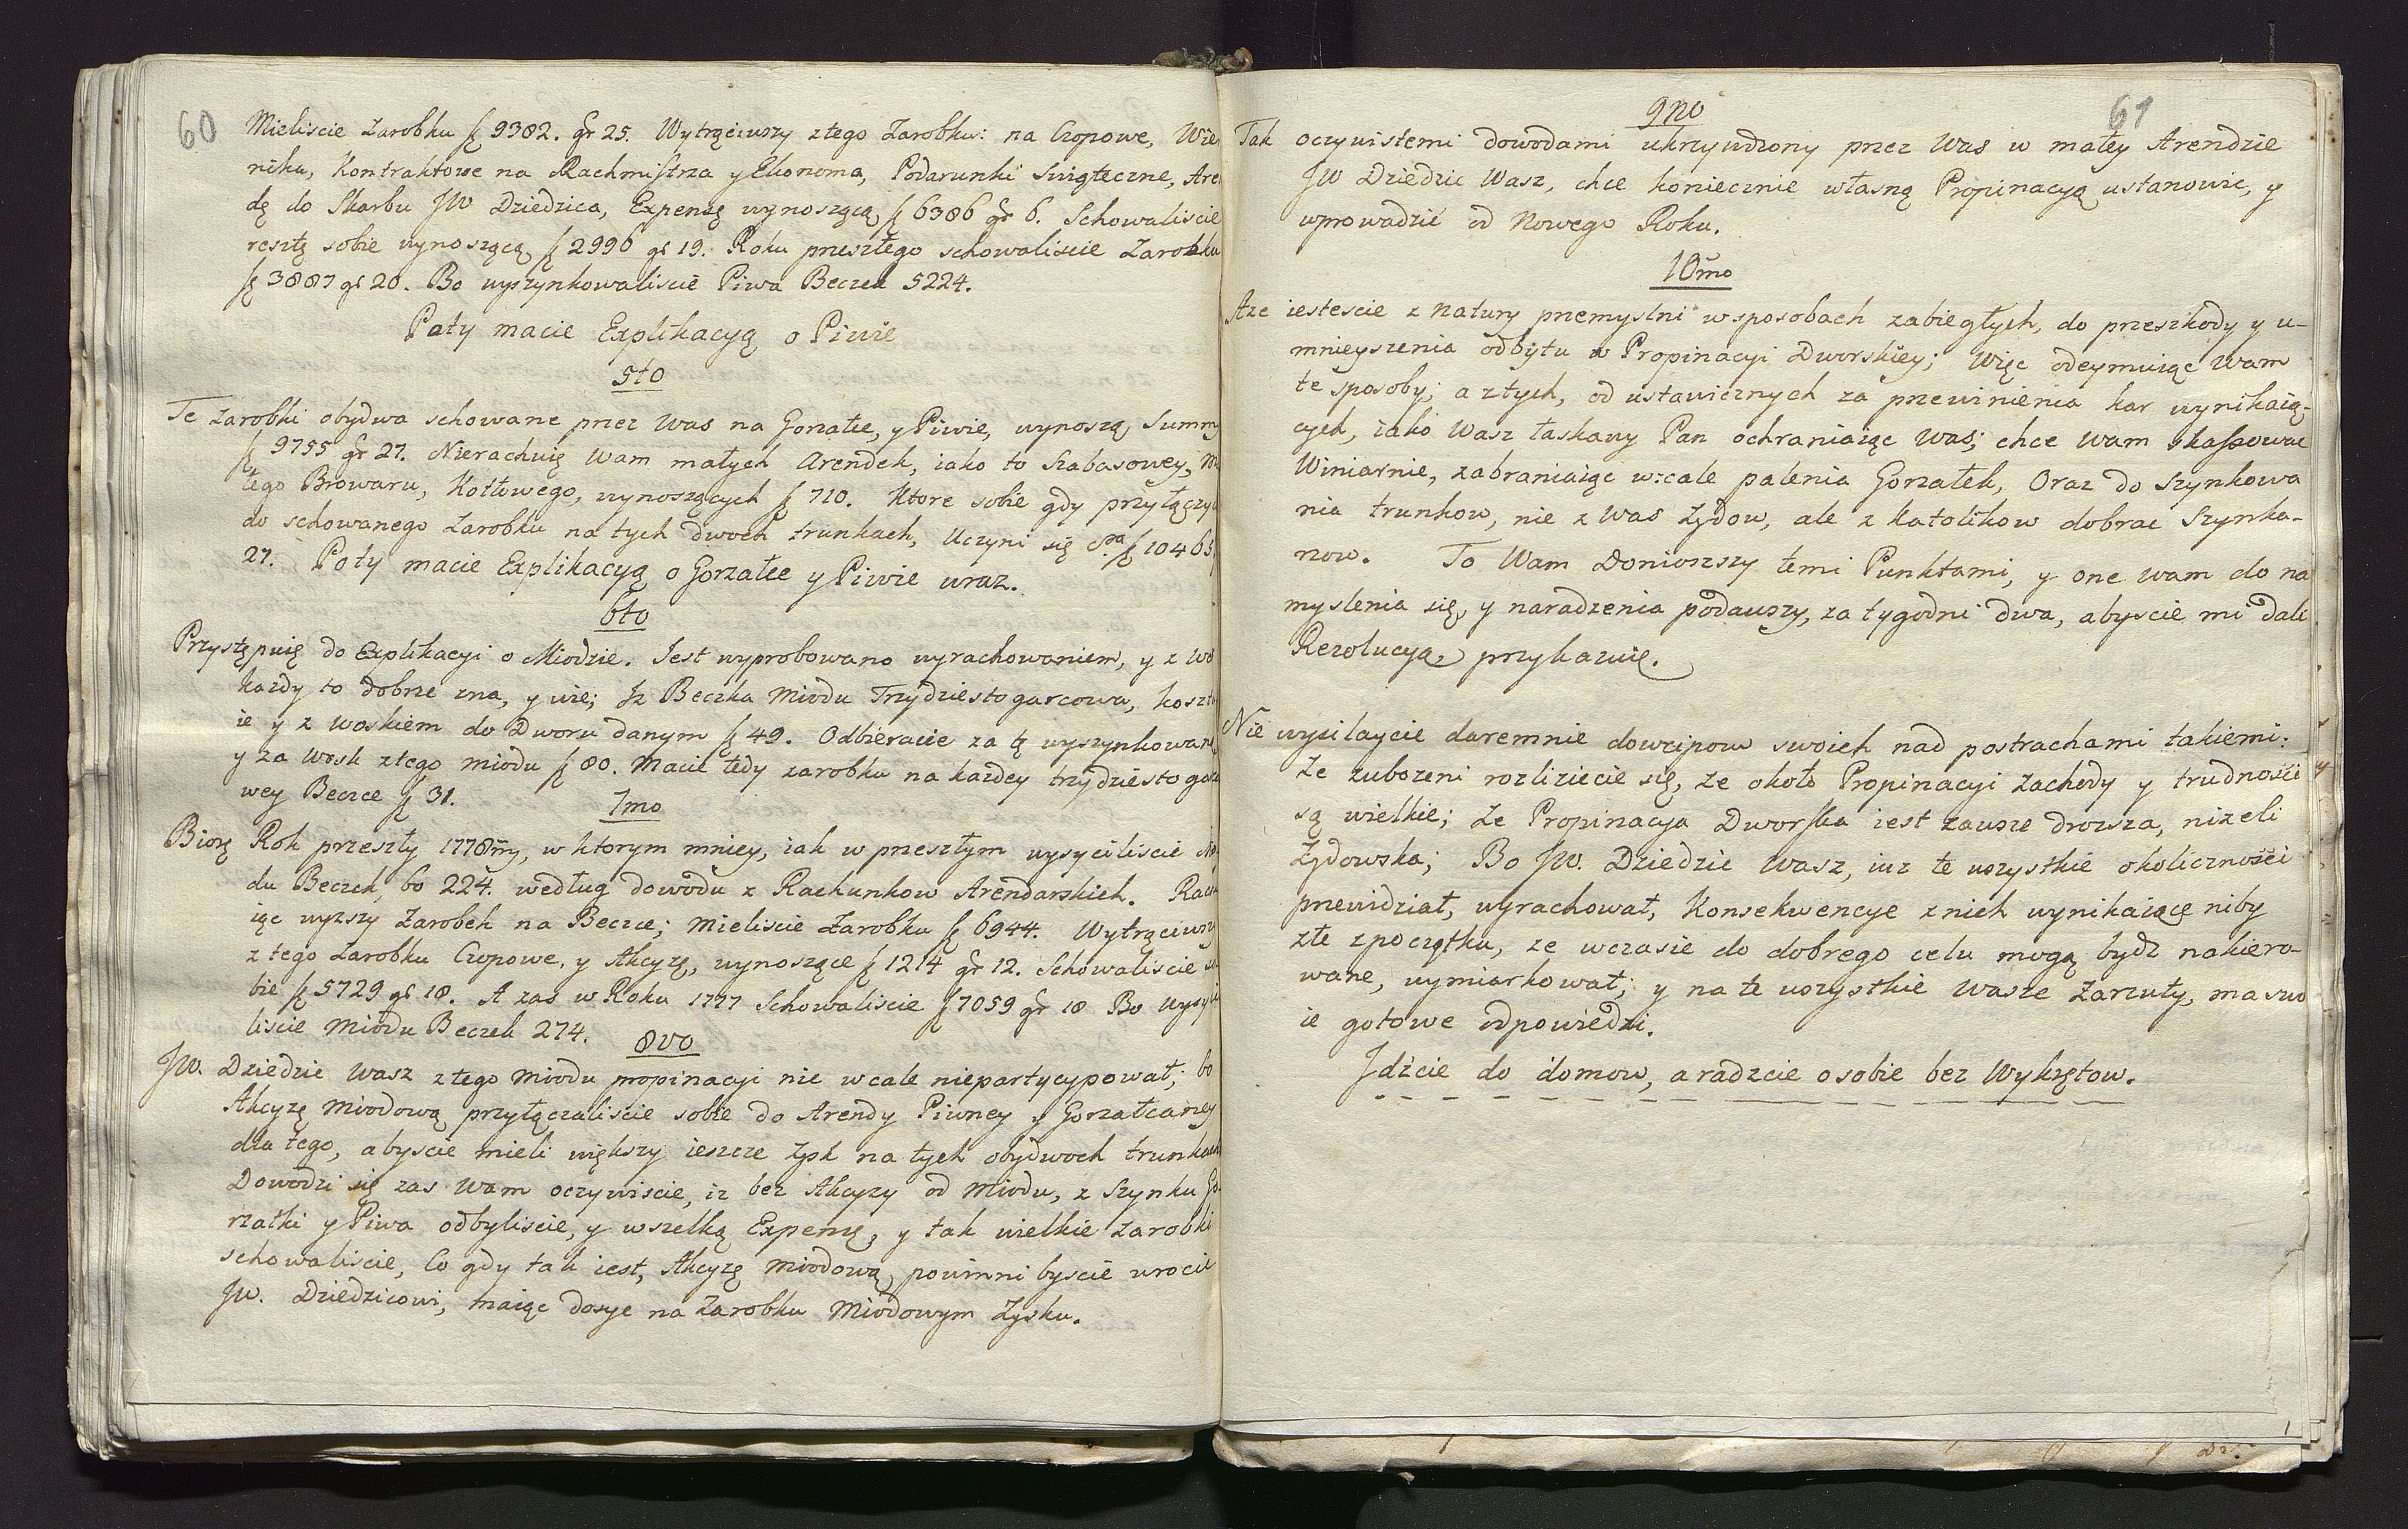 60
Mieliscie Zarobku f 9382. gr 25. Wytrąciwszy z tego Zarobku: na Czopowe, Wie
nika, Kontraktowe na Rachmistrza y Ekonoma, Podarunki Swiąteczne, Are
dę do Skarbu JW Dziedzica, Expensę wynoszącą f 6386 gr 6. Schowaliscie
resztę sobie wynoszącą f 2996 gr 19. Roku przeszłego schowaliscie Zarobku
f 3887 gr 20. Bo wyszynkowaliscie Piwa Beczek 5224.
Poty macie Explikacyą o Piwie
5to
Te Zarobki obydwa schowane przez Was na Gorzałce, y Piwie, wynoszą Summę
f 9755 gr 27. Nierachuię Wam małych Arendek, iako to Szabasowey,
tego Browaru, Kotłowego, wynoszących f 710. Ktore sobie gdy przyłączy
do schowanego Zarobku na tych dwoch trunkach, Uczyni się f 10465
27. Poty macie Explikacyą o Gorzałce y Piwie wraz.
6to
Przystępuię do Explikacyi o Miodzie. Jest wyprobowano wyrachowaniem, y z Wa
kazdy to dobrze zna, y wie; Iz Beczka Miodu Trzydziesto garcowa, koszt
ie y z woskiem do Dworu danym f 49. Odbieracie za tę wyszynkowaną
y za Wosk z tego miodu f 80. Macie tedy zarobku na kazdey trzydziesto garc
wey Beczce f 31.
7mo
Biorę Rok przeszły 1778my, w ktorym mniey, iak w przeszłym wysyciliscie Mio
du Beczek, bo 224. według dowodu z Rachunkow Arendarskich. Rach
iąc wyzszy Zarobek na Beczce; Mieliscie Zarobku f 6944. Wytrąciwszy
z tego Zarobku Czopowe, y Akcyzę, wynoszące f 1214 gr 12. Schowaliscie so
bie f 5729 gr 18. A zas w Roku 1777 Schowaliscie f 7059 gr 18 Bo wysyci
liscie Miodu Beczek 274.
8vo
JW. Dziedzic Wasz z tego Miodu propinacyi nic wcale niepartycypował; bo
Akcyzę Miodową przyłączaliscie sobie do Arendy Piwney y Gorzałczaney
dla tego, abyscie mieli większy ieszcze Zysk na tych obydwoch trunkach
Dowodzi się zas Wam oczywiscie, iz bez Akcyzy od Miodu, z Szynku Go
rzałki y Piwa odbyliscie, y wszelką Expensę, y tak wielkie Zarobki
schowaliscie, Co gdy tak iest, Akcyzę Miodową, powinni byscie wrocić
JW. Dziedzicowi, maiąc dosyc na Zarobku Miodowym Zysku.
61
9no
Tak oczywistemi dowodami ukrzywdzony przez Was w małey Arendzie
JW Dziedzic Wasz, chce koniecznie własną Propinacyą ustanowic, y
wprowadzic od Nowego Roku.
10mo
Aze iestescie z Natury przemyslni w sposobach zabiegłych, do przeszkody y u-
mnieyszenia odbytu w Propinacyi Dworskiey; Więc odeymuiąc Wam
te sposoby; a z tych, od ustawicznych za przewinienia kar wynikaią-
cych, iako Wasz łaskawy Pan ochraniaiąc Was; chce Wam skassowac
Winiarnie, zabraniaiąc w:cale palenia Gorzałek, Oraz do Szynkowa
nia trunkow, nie z Was Zydow, ale z Katolikow dobrac Szynka-
rzow. To Wam Doniosszy temi Punktami, y one wam do na
myslenia się, y naradzenia podawszy, za tygodni dwa, abyscie mi dali
Rezolucyą, przykazuię.
Nie wysilaycie daremnie dowcipow swoich nad postrachami takiemi:
Ze zubozeni rozliziecie się, ze około Propinacyi zachody y trudności
są wielkie; Ze Propinacya Dworska iest zawsze drozsza, nizeli
Zydowska; Bo JW. Dziedzic Wasz, iuz te wszystkie okoliczności
przewidział, wyrachował, Konsekwencye z nich wynikaiące niby
złe z początku, ze wczasie do dobrego celu mogą bydz nakiero-
wane, wymiarkował; y na te wszystkie Wasze Zarzuty, ma swo
ie gotowe odpowiedzi.
Jdzcie do domow, a radzcie o sobie bez Wykrętow.